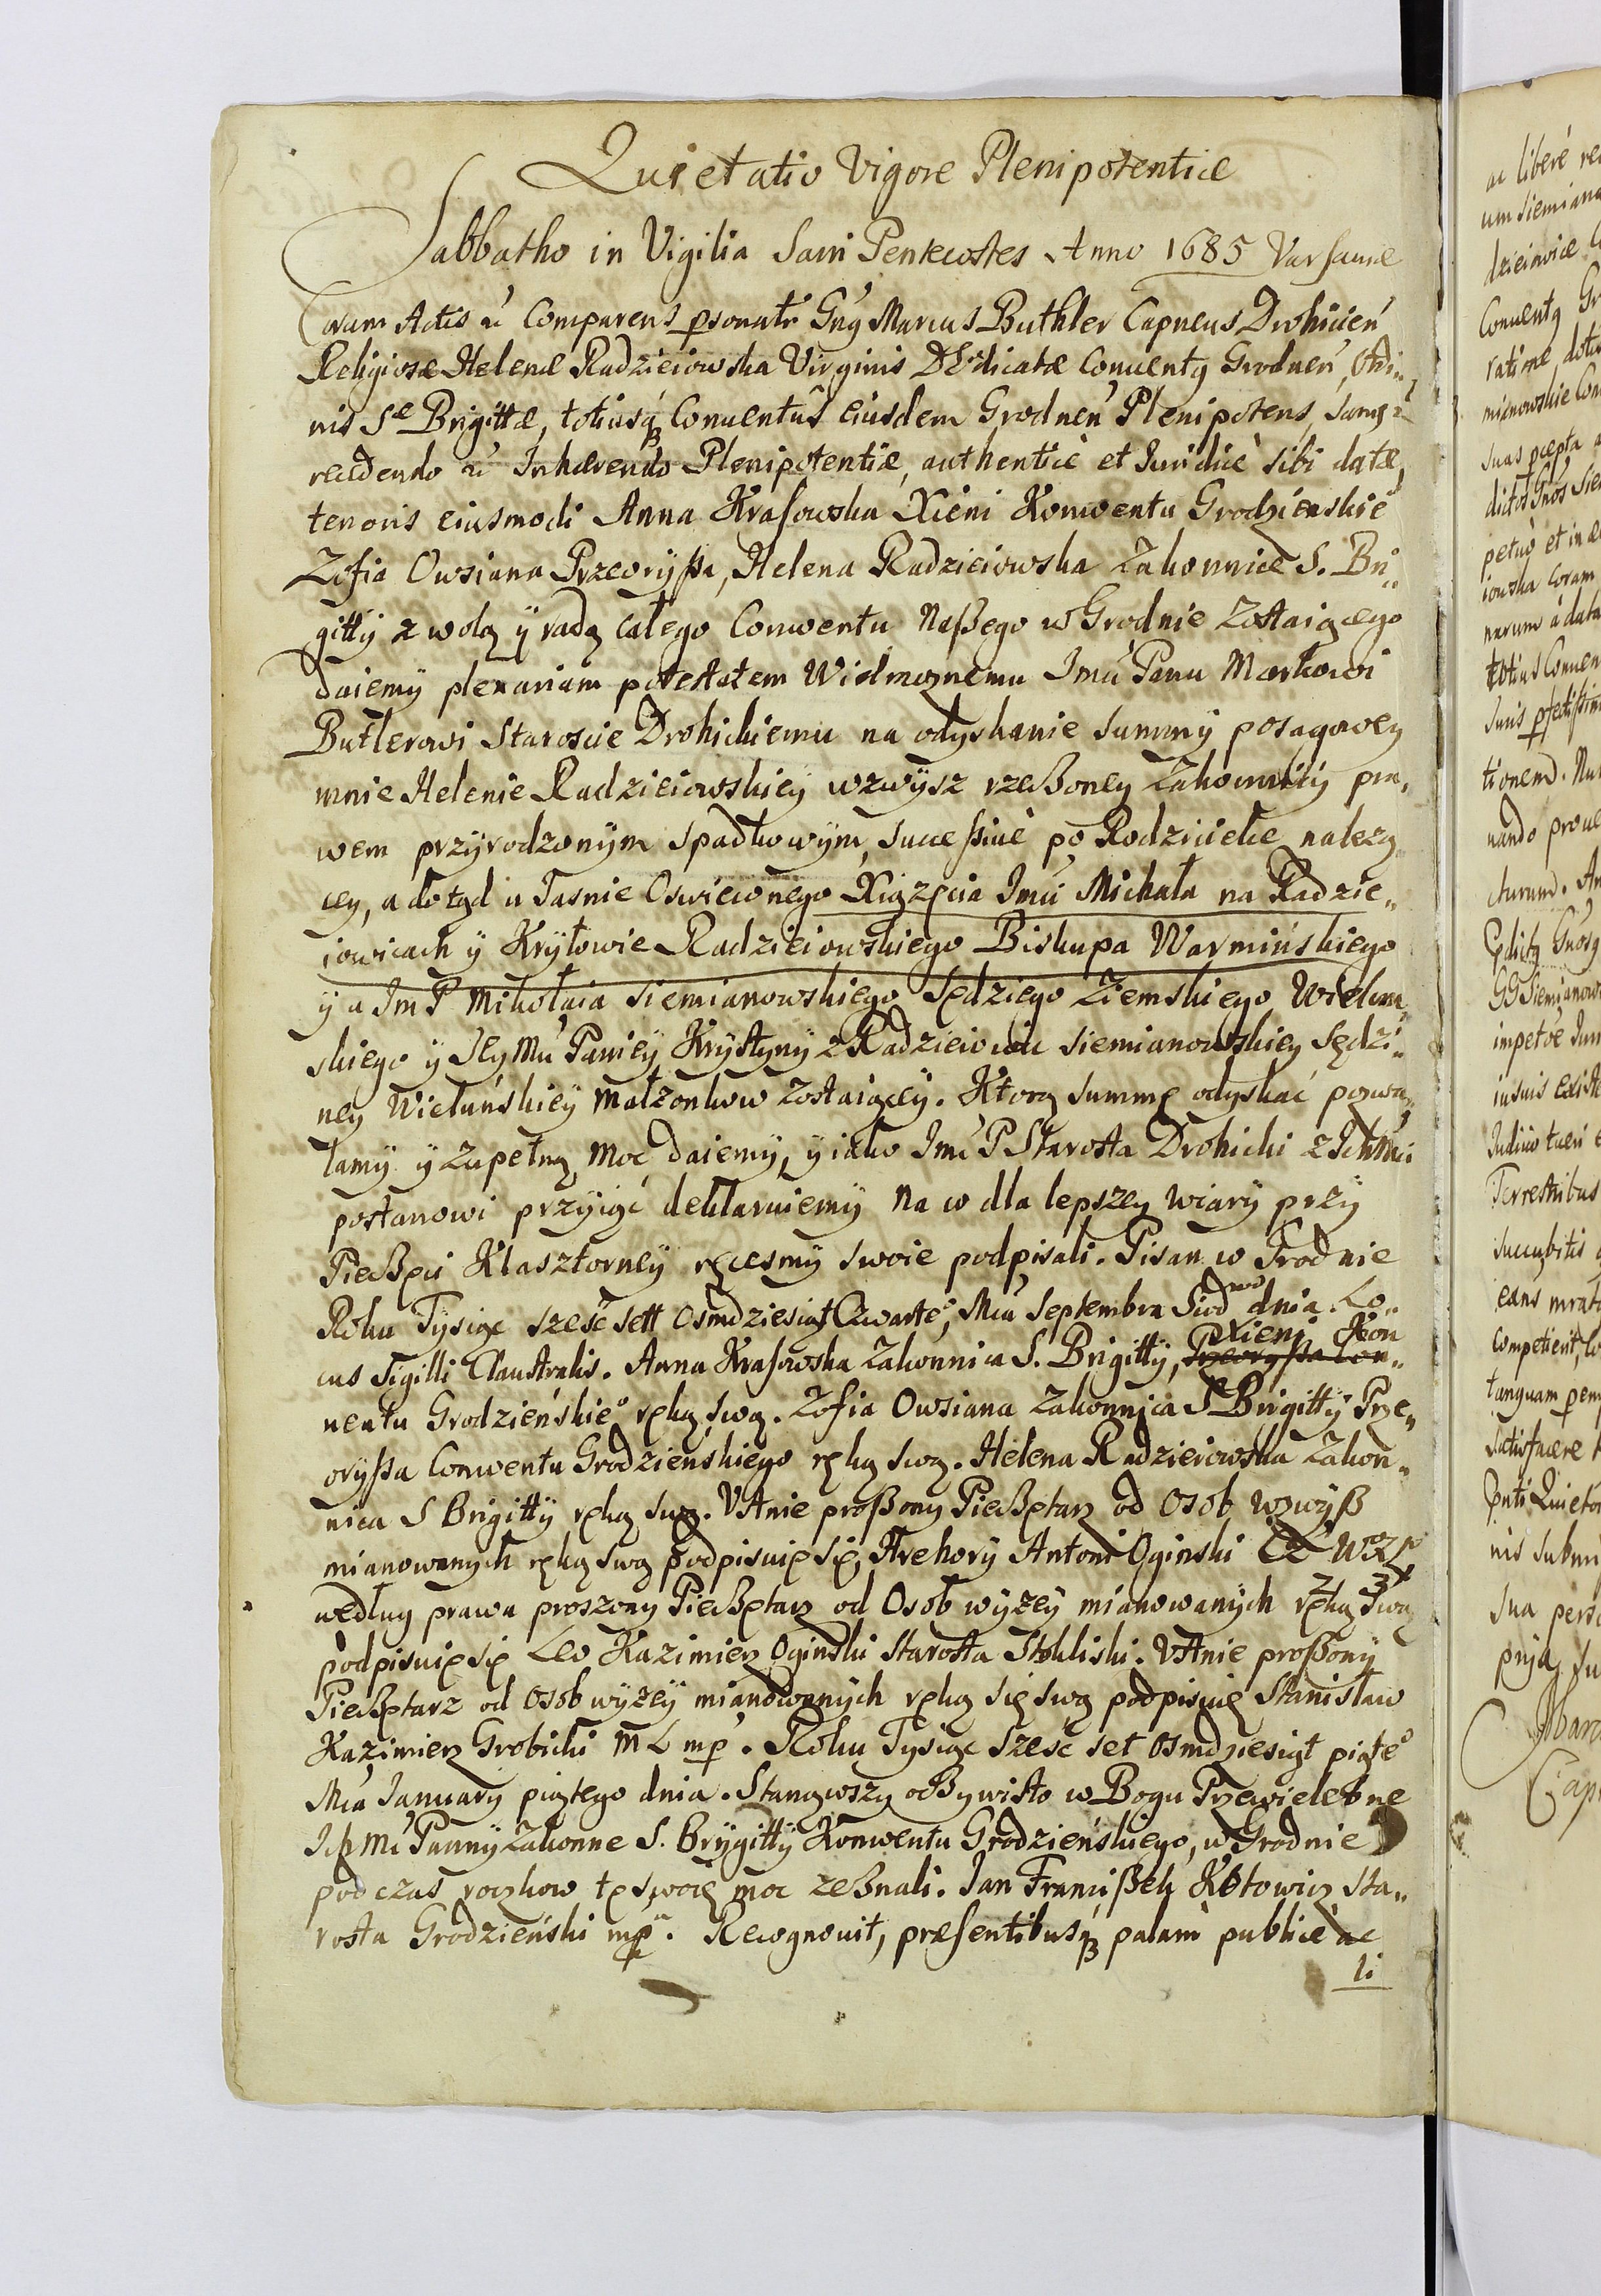 Quietatio Vigore Plenipotentiæ
Sabbatho in Vigilia Sacri Pentecostes Anno 1685 Varsaviæ
Coram Actis &c Comparens psonalr Gnŷ Marcus Buthler Capneus Drohicień
Religiosæ Helenæ Radzieiowska Virginis DEdicatæ Conventq Grodneń, Ordi„
nis Sæ Brigittæ, totiusq Conventûs Eiusdem Grodneń Plenipotens,
recedendo &c Inhærendo Plenipotentiæ, authenticè et Iuridicè sibi datæ,
tenoris eiusmodi Anna Krasowska Xieni Konwentu Grodzienskie̊
Zofia Owsiana Przeoryßa, Helena Radzieiowska Zakonnice S. Bri„
gitty z wolą y radą całego Conwentu Naßego w Grodnie Zostaiącego
daiemy plenariam potestatem Wielmoznemu Imć Panu Markowi
Butlerowi Staroscie Drohickiemu na odyskanie summy posagowey
mnie Helenie Radzieiowskiey wzwysz rzeßoney Zakonnicy pra„
wem przyrodzonym spadkowym, successivè po Rodzicielce należą„
cey, a dotąd u Jasnie Oswieconego Xiążęcia Imći Michała na Radzie„
iowicach y Kryłowie Radzieiowskiego Biskupa Warmińskiego
y u Im P Mikołaia Siemianowskiego Sędziego Ziemskiego Wielun„
skiego y Iey Mći Paniey Krystyny z Radzieiowic Siemianowskiey Sędzi„
ney Wieluńskiey małzonkow zostaiącey. Ktorą summę odyskać pozwa„
lamy y zupełną moc daiemy, y iako Imć P Starosta Drohicki z Ichmći
postanowi przyiąć deklaruiemy Na co dla lepszey wiary przy
Pieczęci Klasztorney ręcesmy swoie podpisali. Pisan w Grodnie
Roku Tysiąc szesć sett Osmdziesiąt Czwarte̊, Mca Septembra Siod dnia. Lo„
cus Sigilli Claustralis. Anna Krasowska Zakonnica S. Brigitty, Przeoryßa Con„ Xieni Kon
uentu Grodzieńskie̊ ręką swą. Zofia Owsiana Zakonnica S Brigitty Prze„
oryßa Conwentu Grodzieńskiego ręką swą. Helena Radzieiowska Zakon„
nica S Brigitty ręką swą. Vstnie proßony Pieczętarz od Osob wzwyß
mianowanych ręką swą podpisuię się, Hrehory Antoni Oginski
według prawa proszony Pieczętarz od Osob wyżey mianowanych ręką swą
podpisuię się Leo Kazimierz Oginski Starosta Stokliski. Vstnie proßony
Pieczętarz od Osob wyżey mianowanych ręką się swą podpisuię Stanisław
Kazimierz Grobicki M L mp. Roku Tysiąc szesć set osmdziesiąt piąte̊
Mca January piątego dnia. Stanąwszy oczywisto w Bogu Przewielebne
Ich Mć Panny Zakonne S. Brygitty Konwentu Grodzieńskiego, w Grodnie
podczas roczkow tę swoią moc zeznali. Jan Franciszek Kotowicz Sta„
rosta Grodzieński mp. Recognovit, præsentibusq palam publicè ac
li